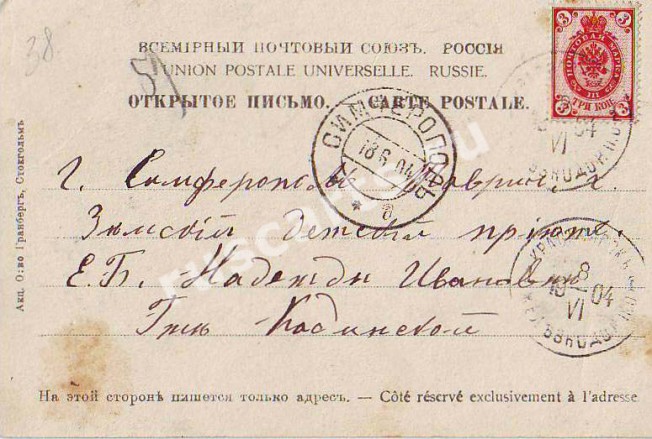 38
ВСЕМІРНЫЙ ПОЧТОВЫЙ СОЮЗЪ. РОССІЯ
UNION POSTALE UNIVERSELLE. RUSSIE.
ОТКРЫТОЕ ПИСЬМО. — CARTE POSTALE.
3 3
ПОЧТОВАЯ МАРКА
3 ТРИ КОП. 3
04
VI
СИМФЕРОПОЛЬ
18 6 04
г. Симферополь
Земскій детскій пріют.
Е.Б. Надежди Ивановни
8
10 04
VI
Акц. О:во Гранбергъ, Стокгольмъ
На этой сторонѣ пишется только адресъ. — Côté réservé exclusivement à l'adresse
ruscards.ru